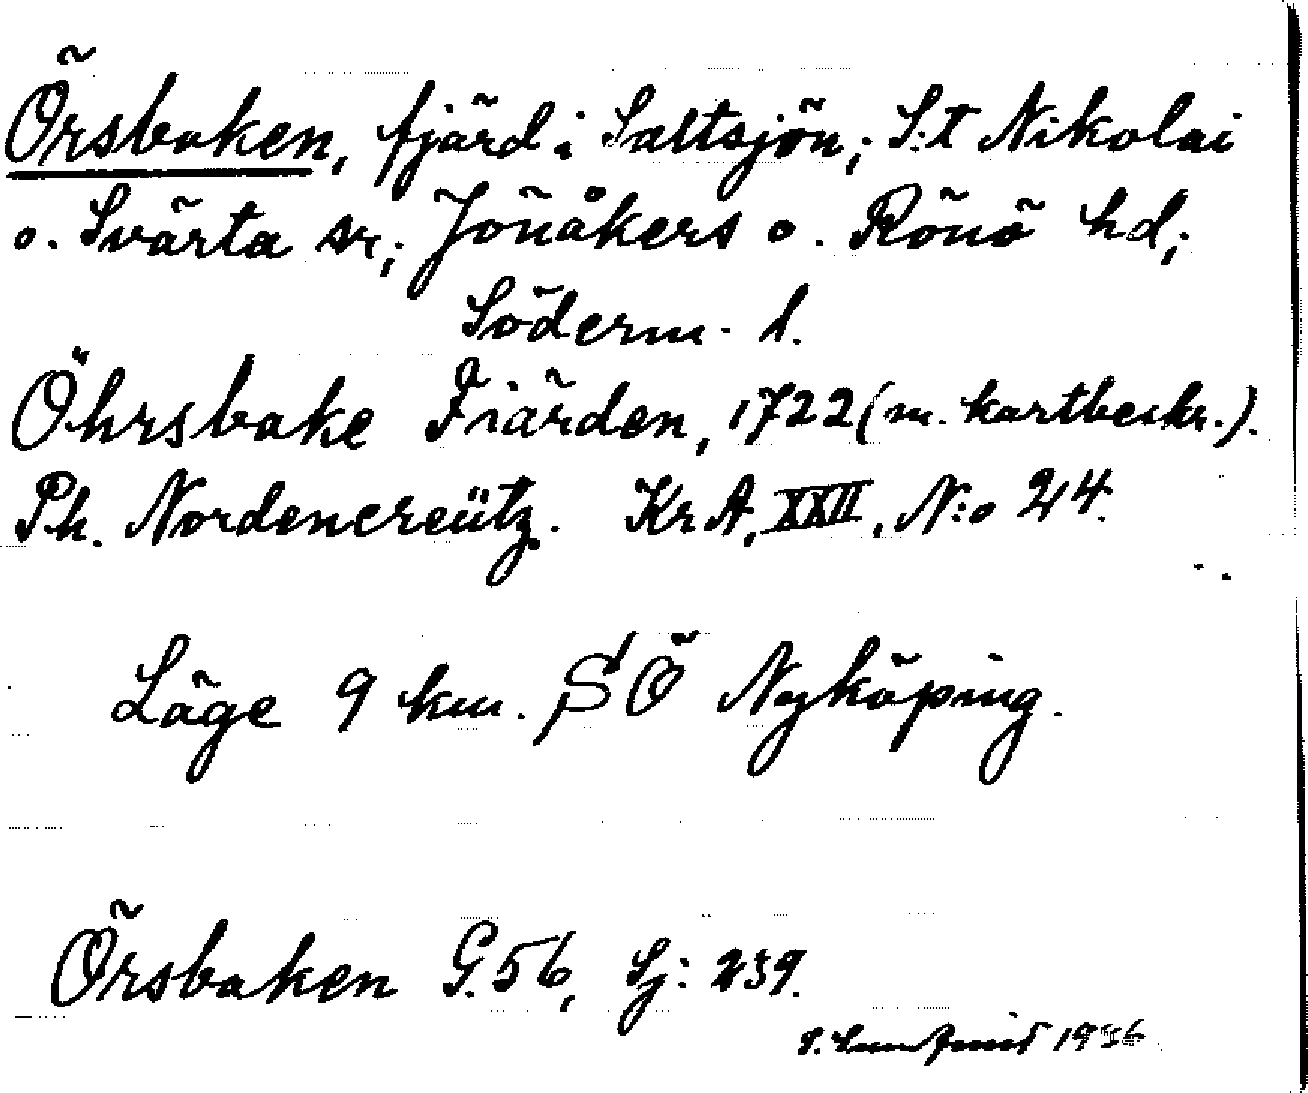 Örsbaken, fjärd i Saltsjön; S:t Nikolai
o. Svärta sr; Jönåkers o. Rönö hd;
Söderm. l.
Öhrsbake Fiärden, 1722 (m. kartbeskr.).
Ph. Nordencreütz. Kr A, XXII, N:o 24.
Läge 9 km. SÖ Nyköping.
Örsbaken G. 56, Sj: 239.
S. 1936